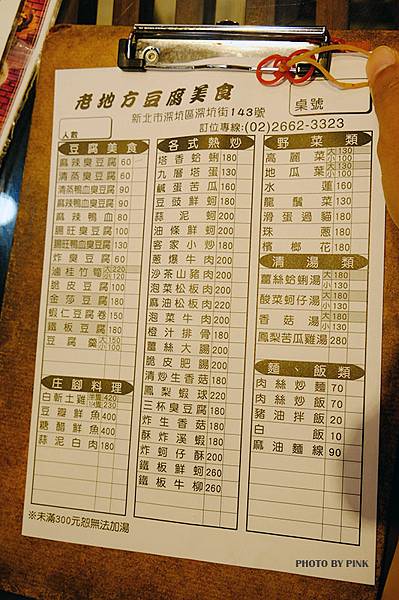 老地方豆腐美食
新北市深坑區深坑街143號
訂位專線:(02)2662-3323
桌號
人數
豆腐美食
麻辣臭豆腐 60
清蒸臭豆腐 60
清蒸鴨血臭豆腐 90
麻辣鴨血臭豆腐 90
麻辣鴨血 80
腸旺臭豆腐 110
腸旺鴨血臭豆腐 130
炸臭豆腐 60
滷桂竹筍 大220 小120
脆皮豆腐 100
金莎豆腐 180
蝦仁豆腐卷 150
鐵板豆腐 180
豆腐羹 大150 小100
庄腳料理
白斬土雞 420 230
豆瓣鮮魚 400
糖醋鮮魚 400
蒜泥白肉 180
※未滿300元恕無法加湯
各式熱炒
塔香蛤蜊 180
九層塔蛋 130
鹹蛋苦瓜 160
豆豉鮮蚵 180
蒜泥蚵 200
油條鮮蚵 200
客家小炒 180
蔥爆牛肉 200
沙茶山豬肉 200
泡菜松板肉 200
麻油松板肉 220
泡菜牛肉 200
橙汁排骨 180
薑絲大腸 200
脆皮肥腸 200
清炒生香菇 180
鳳梨蝦球 220
三杯臭豆腐 180
炸生香菇 180
酥炸溪蝦 180
炸蚵仔酥 200
鐵板鮮蚵 260
鐵板牛柳 260
野菜類
高麗菜 大130 小100
地瓜葉 大130 小100
水蓮 160
龍鬚菜 130
滑蛋過貓 180
珠蔥 180
檳榔花 180
清湯類
薑絲蛤蜊湯 大180 小130
酸菜蚵仔湯 大280 小180
香菇湯 大280 小180
鳳梨苦瓜雞湯 280
麵、飯類
肉絲炒麵 70
肉絲炒飯 70
豬油拌飯 20
白飯 10
麻油麵線 90
PHOTO BY PINK